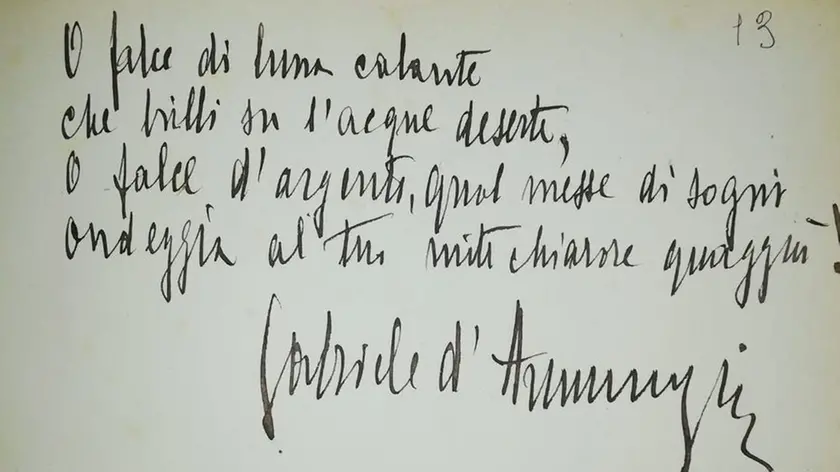 13
O falce di luna calante
che brilli su l'acque deserte,
O falce d'argento, qual messe di sogni
ondeggia al tuo mite chiarore quaggiù!
Gabriele d'Annunzio